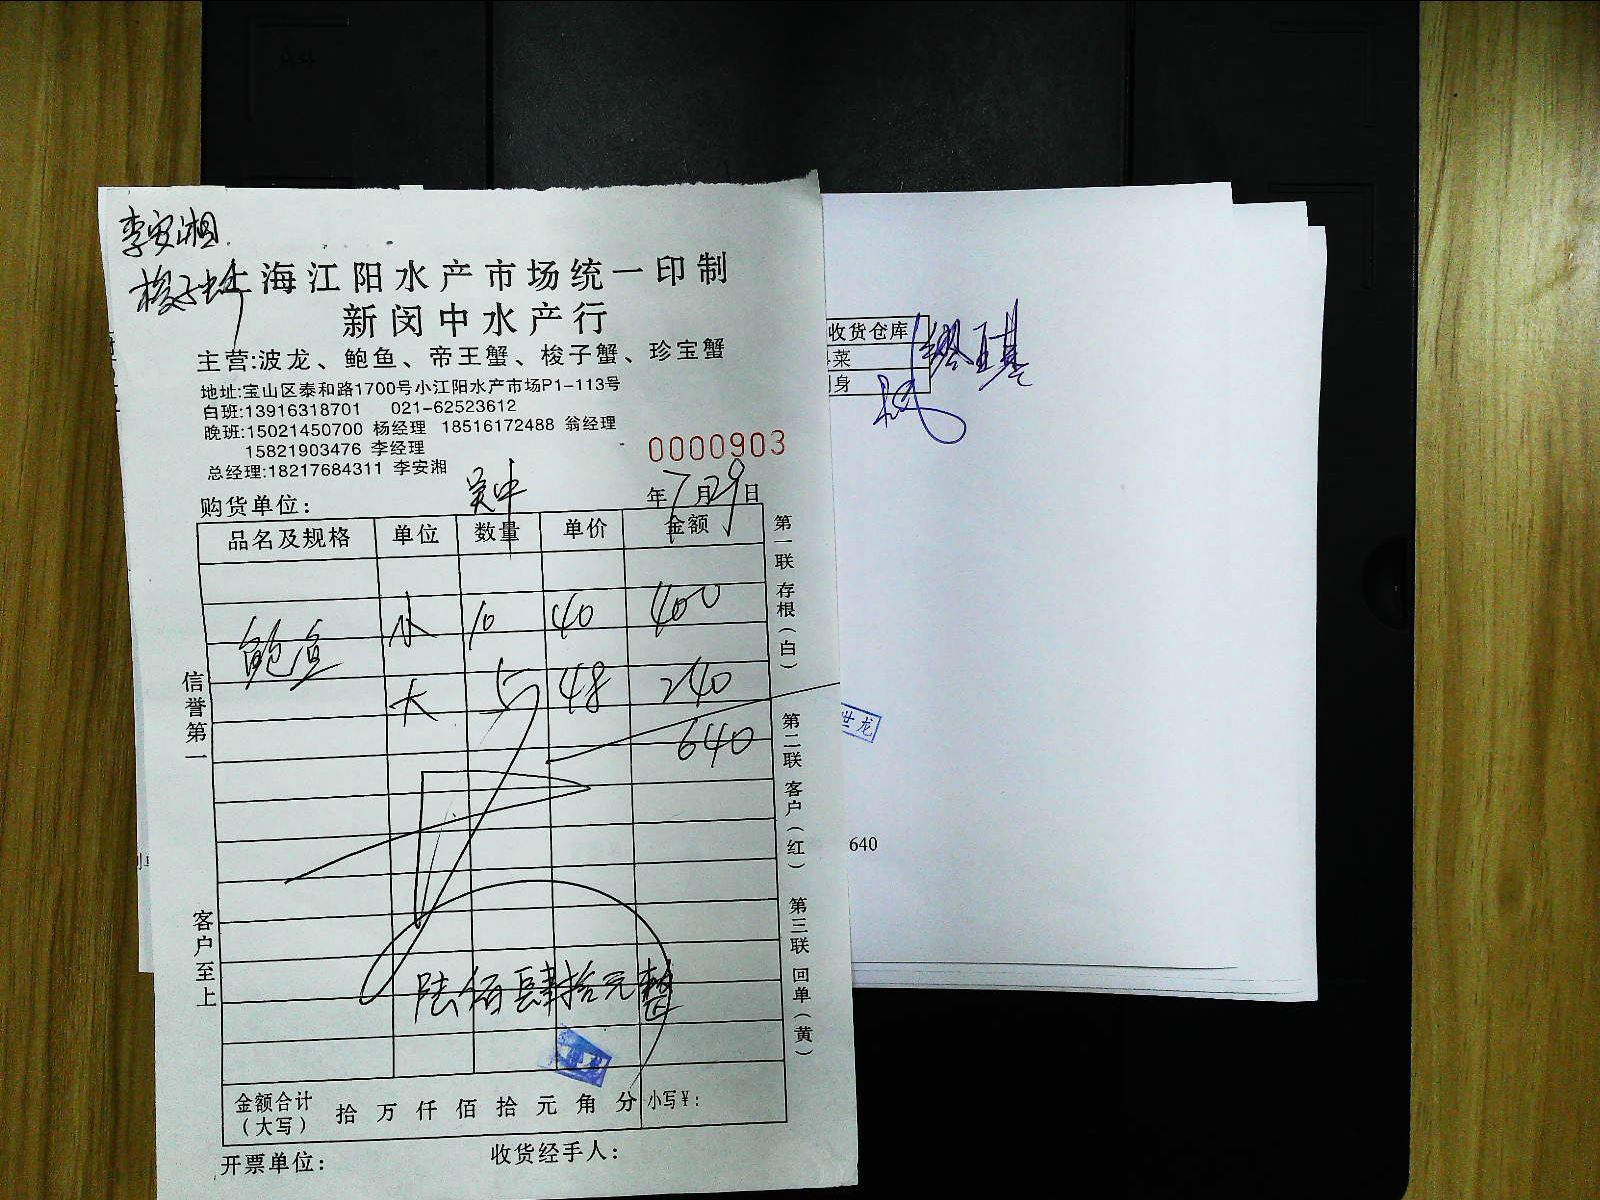 李安湘
梭子蟹
上海江阳水产市场统一印制
新闵中水产行
主营:波龙、鲍鱼、帝王蟹、梭子蟹、珍宝蟹
地址:宝山区泰和路1700号小江阳水产市场P1-113号
白班:13916318701 021-62523612
晚班:15021450700 杨经理 18516172488 翁经理
15821903476 李经理
总经理:18217684311 李安湘
0000903
购货单位: 吴中 年7月29日
品名及规格 单位 数量 单价 金额
鲍鱼 小 10 40 400
大 5 48 240
640
陆佰肆拾元整
金额合计(大写) 拾 万 仟 佰 拾 元 角 分 小写¥:
开票单位: 收货经手人:
信誉第一
客户至上
第一联 存根(白)
第二联 客户(红)
第三联 回单(黄)
收货仓库
菜
身
世龙
640